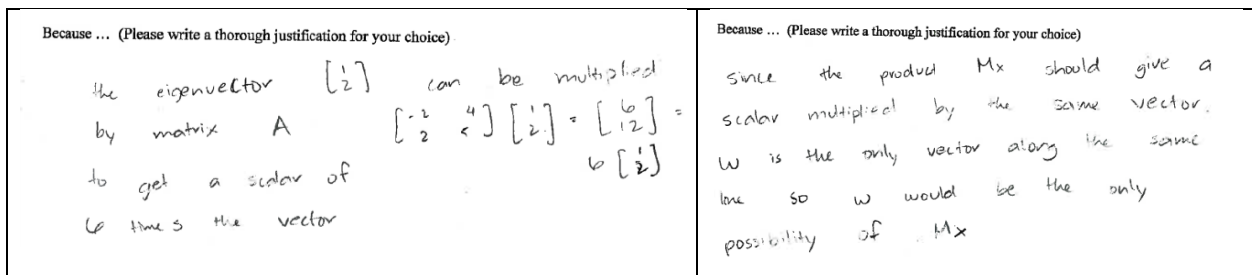 Because ... (Please write a thorough justification for your choice)
the eigenvector [1 2] can be multiplied
by matrix A [-2 4 2 5] [1 2] = [6 12] =
to get a scalar of 6 [1 2]
6 times the vector
Because ... (Please write a thorough justification for your choice)
Since the product Mx should give a
scalar multiplied by the same vector.
w is the only vector along the same
line so w would be the only
possibility of Mx